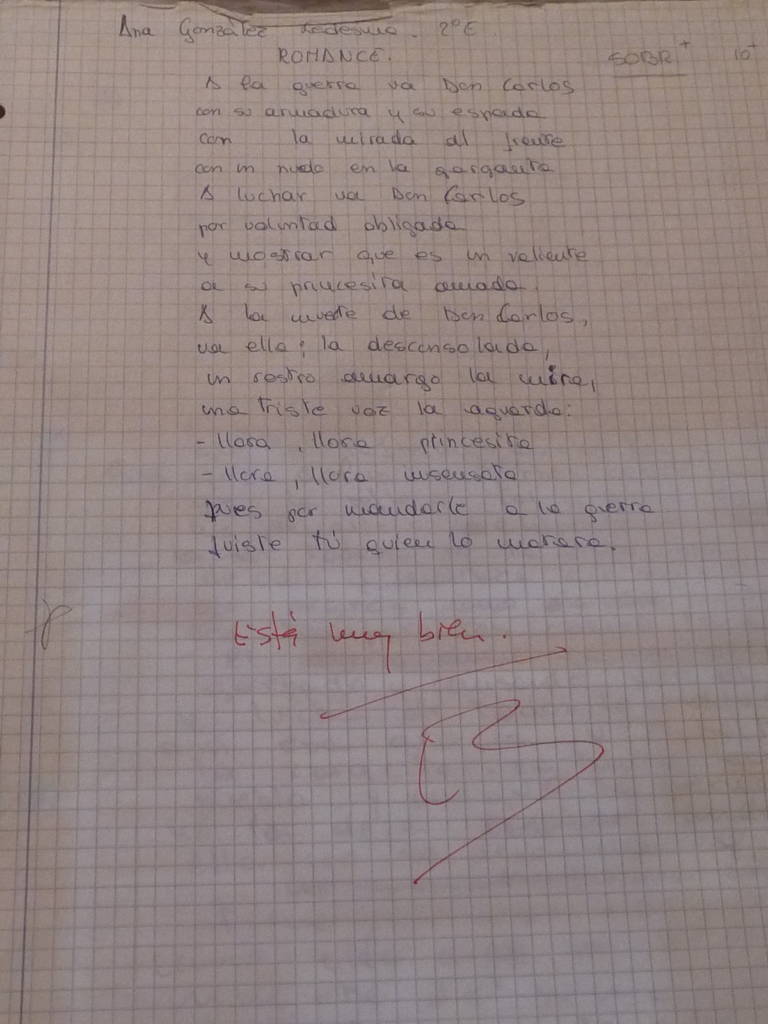 Ana González Ledesma. 2ºE
ROMANCE. SOBR+ 10+
A la guerra va Don Carlos
con su armadura y su espada
con la mirada al frente
con un nudo en la garganta
A luchar va Don Carlos
por voluntad obligada
y mostrar que es un valiente
a su princesita amada.
A la muerte de Don Carlos,
va ella; la desconsolada,
un rostro amargo la mira,
una triste voz la aguarda:
- llora, llora princesita
- llora, llora insensata
pues por mandarle a la guerra
fuiste tú quien lo matara.
Está muy bien.